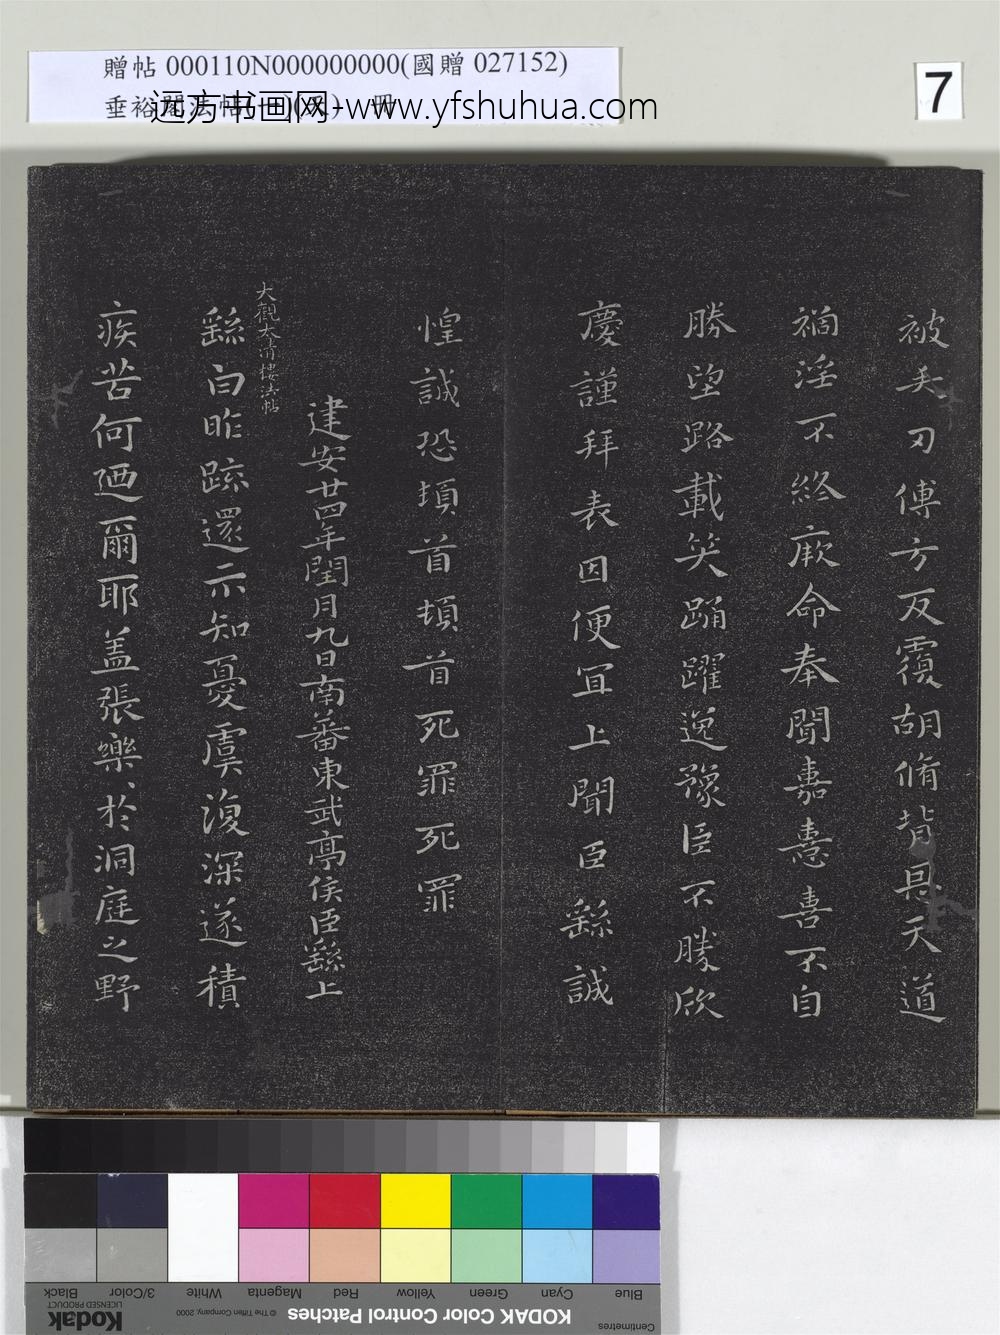 贈帖 000110N000000000(國贈 027152)
垂裕閣法帖
远方书画网-www.yfshuhua.com
7
被矢刃傅方反覆胡脩背恩天道
禍淫不終厥命奉聞嘉憙喜不自
勝望路載笑踊躍逸豫臣不勝欣
慶謹拜表因便宜上聞臣繇誠
惶誠恐頓首頓首死罪死罪
建安廿四年閏月九日南蕃東武亭侯臣繇上
大觀太清樓法帖
繇白昨疏還示知憂虞復深遂積
疾苦何迺爾耶盖張樂於洞庭之野
Blue
Cyan
Green
Yellow
Red
Magenta
White
3/Color
Black
Centimetres
KODAK Color Control Patches
© The Tiffen Company, 2000
Kodak
LICENSED PRODUCT